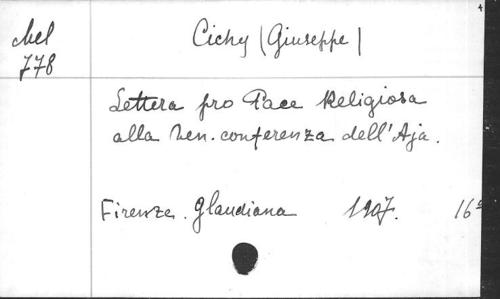 4
Mel
778
Cichy (Giuseppe)
Lettera pro Pace Religiosa
alla Ven. conferenza dell'Aja.
Firenze. Glaudiana 1907. 16º